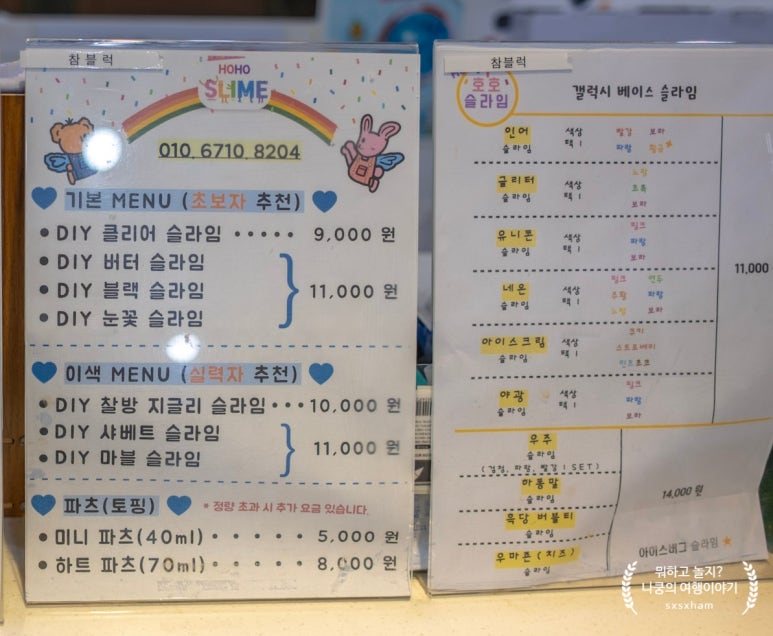 참블럭
HOHO
SLIME
010. 6710. 8204
기본 MENU (초보자 추천)
• DIY 클리어 슬라임 ····· 9,000 원
• DIY 버터 슬라임
• DIY 블랙 슬라임
• DIY 눈꽃 슬라임
11,000 원
이색 MENU (실력자 추천)
• DIY 찰방 지글리 슬라임 ··· 10,000 원
• DIY 샤베트 슬라임
• DIY 마블 슬라임
11,000 원
파츠(토핑)
* 정량 초과 시 추가 요금 있습니다.
• 미니 파츠(40ml) · · · · · 5,000 원
• 하트 파츠(70ml) · · · · · 8,000 원
참블럭
호호
슬라임
갤럭시 베이스 슬라임
인어 슬라임
색상 택 1
빨강 보라
파랑 황금
글리터 슬라임
색상 택 1
노랑
초록
보라
유니콘 슬라임
색상 택 1
핑크
파랑
보라
네온 슬라임
색상 택 1
핑크 연두
주황 파랑
노랑 보라
아이스크림 슬라임
색상 택 1
쿠키
스트로베리
민트초코
야광 슬라임
색상 택 1
핑크
파랑
보라
11,000
우주
슬라임
(검정, 파랑, 빨강 1 SET)
하통말
슬라임
흑당 버블티
슬라임
우마큰 (치즈)
슬라임
14,000 원
아이스버그 슬라임
뭐하고 놀지?
나쿵의 여행이야기
sxsxham